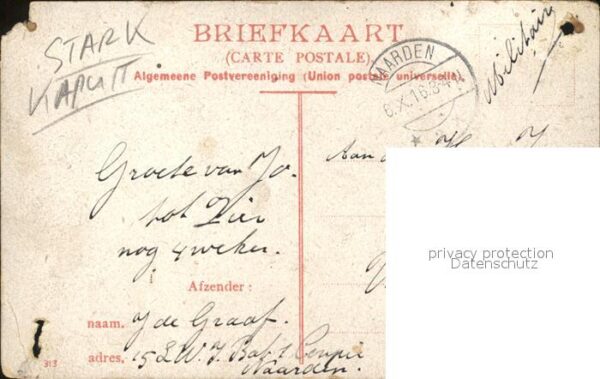 STARK
KAPUTT
BRIEFKAART
(CARTE POSTALE)
Algemeene Postvereeniging (Union postale universelle).
NAARDEN
6.X.16.3-4
Militair
Aan
Groete van Jo.
tot Zier
nog 4 weken.
privacy protection
Datenschutz
Afzender:
naam. J de Graaf.
adres. 15 L.W.I. Bat 1 Compie
Naarden.
313